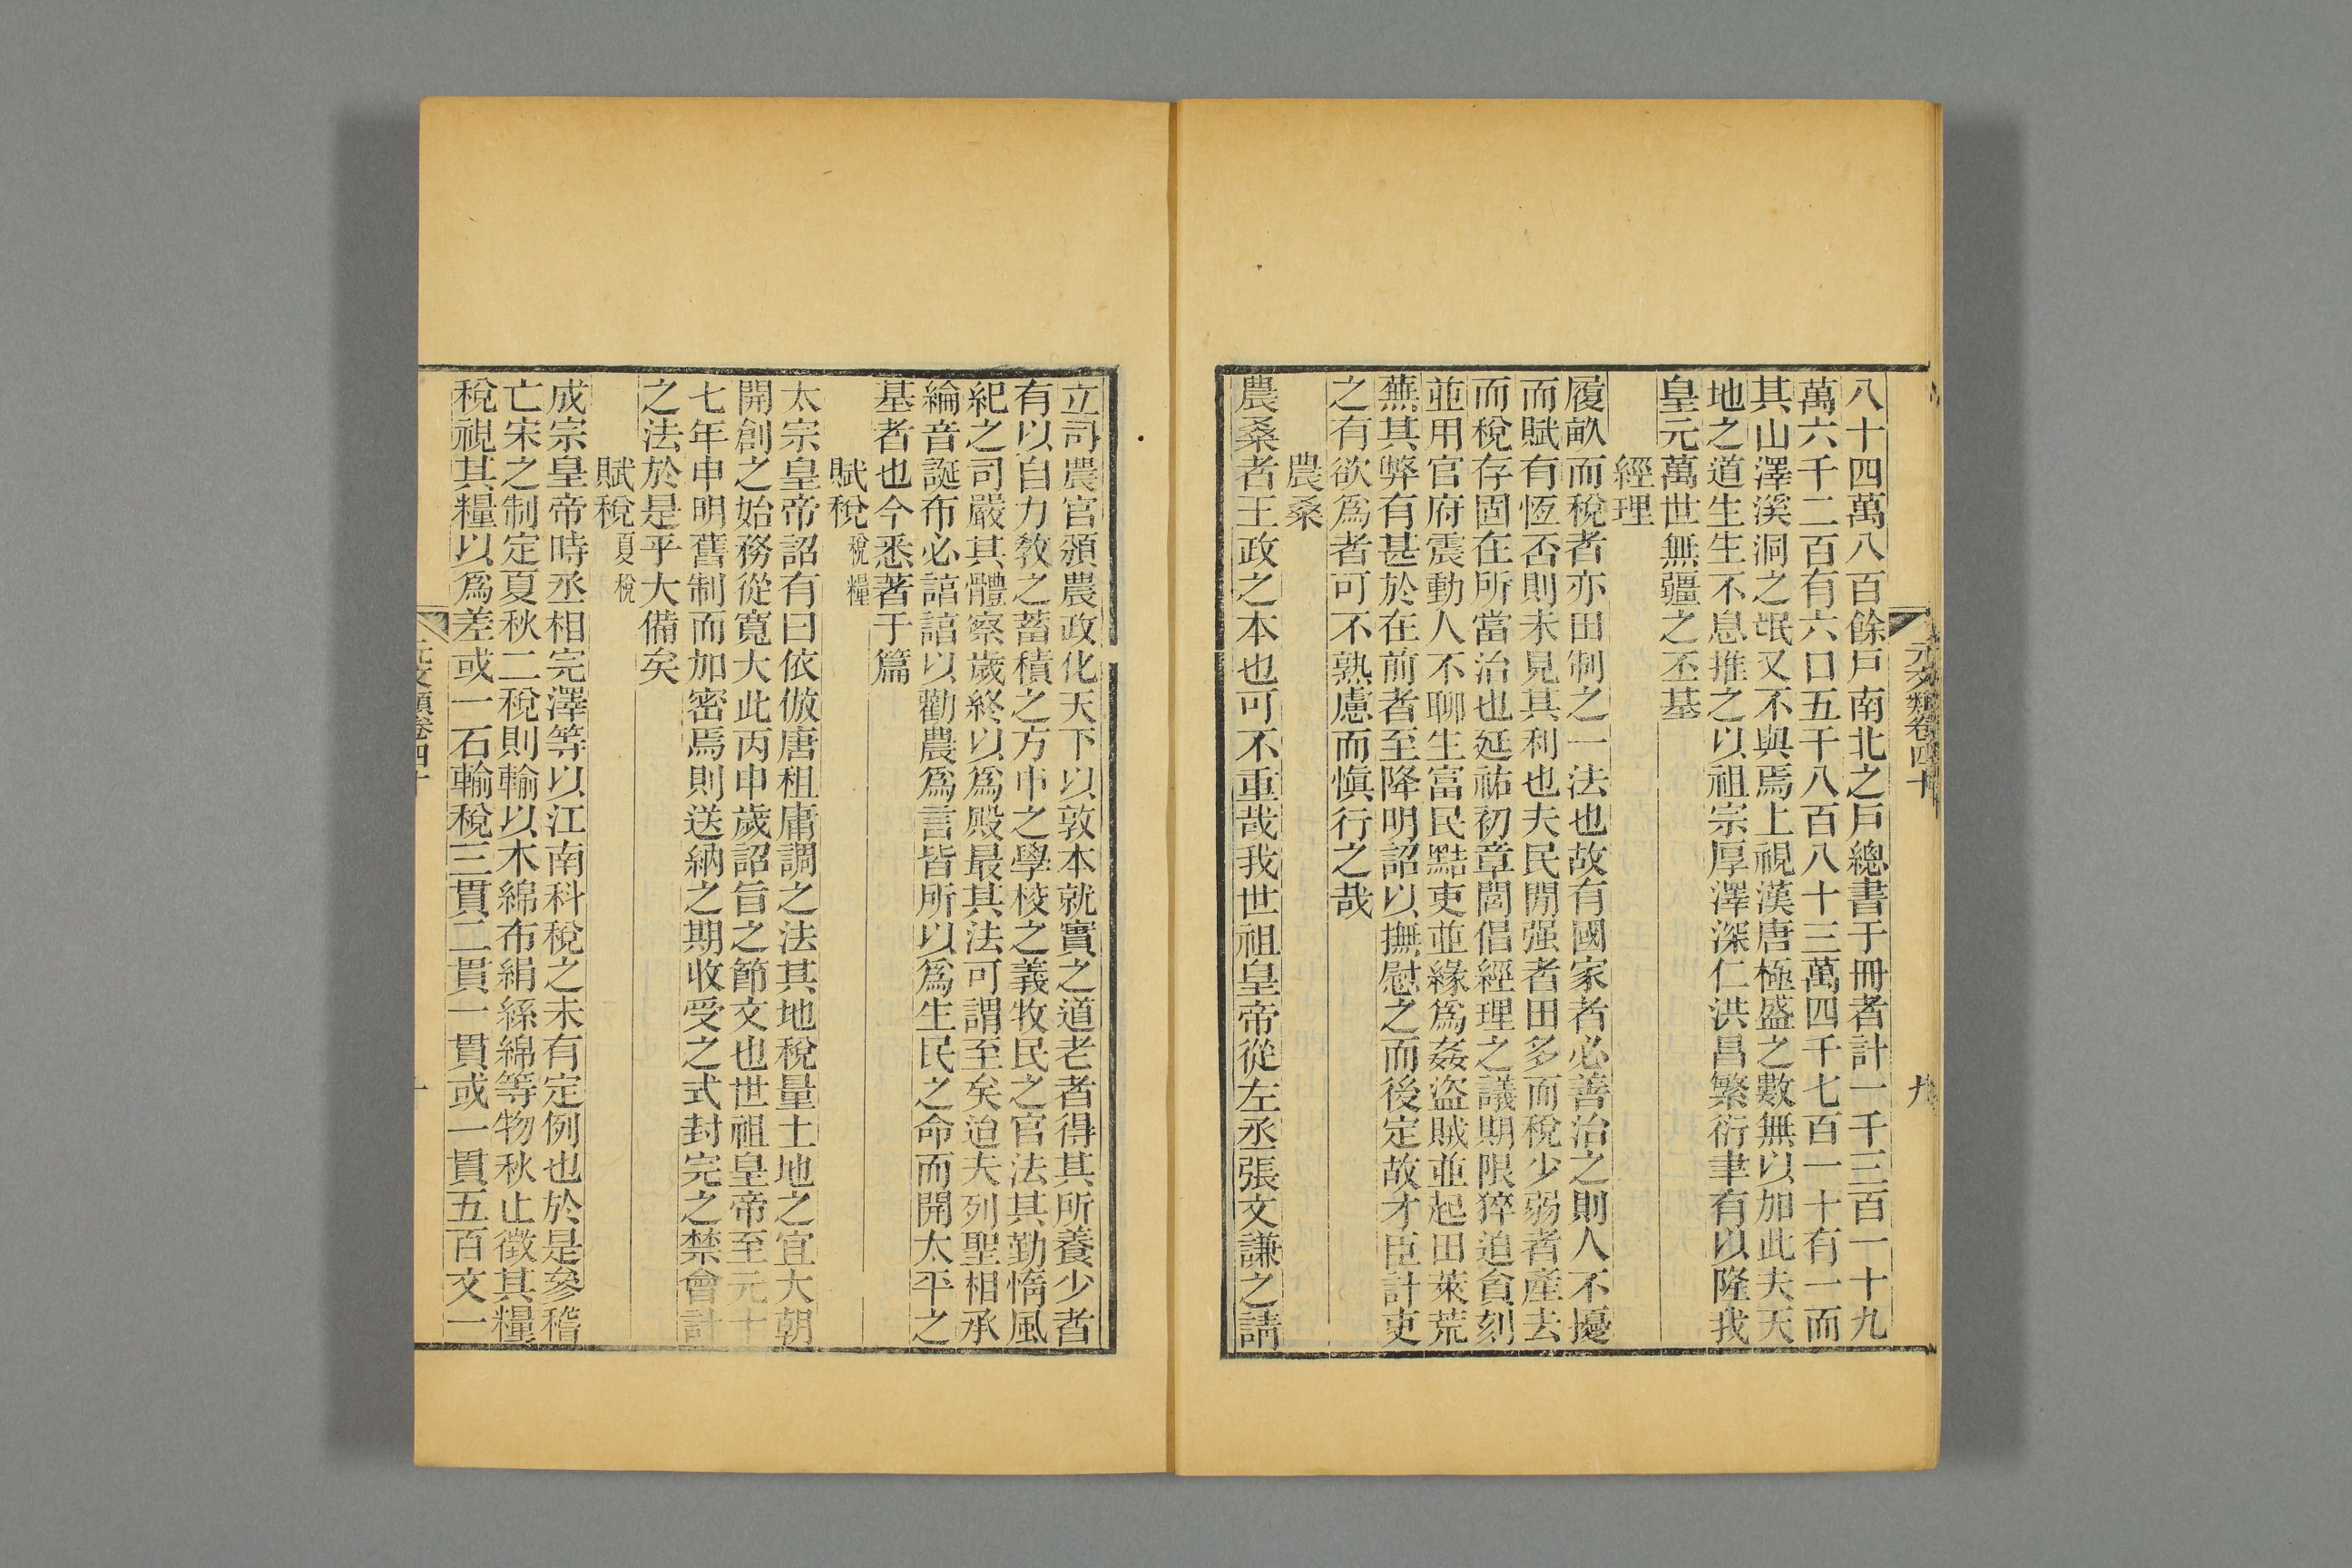 元文類卷四十
九
八十四萬八百餘戶南北之戶總書于冊者計一千三百一十九
萬六千二百有六口五千八百八十三萬四千七百一十有一而
其山澤溪洞之氓又不與焉上視漢唐極盛之數無以加此夫天
地之道生生不息推之以祖宗厚澤深仁洪昌繁衍聿有以隆我
皇元萬世無疆之丕基
經理
履畝而稅者亦田制之一法也故有國家者必善治之則人不擾
而賦有恆否則未見其利也夫民閒强者田多而稅少弱者產去
而稅存固在所當治也延祐初章閭倡經理之議期限猝迫貪刻
並用官府震動人不聊生富民黠吏並緣爲姦盜賊並起田萊荒
蕪其弊有甚於在前者至降明詔以撫慰之而後定故才臣計吏
之有欲爲者可不熟慮而愼行之哉
農桑
農桑者王政之本也可不重哉我世祖皇帝從左丞張文謙之請
立司農官頒農政化天下以敦本就實之道老者得其所養少者
有以自力敎之蓄積之方申之學校之義牧民之官法其勤惰風
紀之司嚴其體察歲終以爲殿最其法可謂至矣迨夫列聖相承
綸音誕布必諄諄以勸農爲言皆所以爲生民之命而開太平之
基者也今悉著于篇
賦稅 稅糧
太宗皇帝詔有曰依倣唐租庸調之法其地稅量土地之宜大朝
開創之始務從寬大此丙申歲詔旨之節文也世祖皇帝至元十
七年申明舊制而加密焉則送納之期收受之式封完之禁會計
之法於是乎大備矣
賦稅 夏稅
成宗皇帝時丞相完澤等以江南科稅之未有定例也於是參稽
亡宋之制定夏秋二稅則輸以木綿布絹絲綿等物秋止徵其糧
稅視其糧以爲差或一石輸稅三貫二貫一貫或一貫五百文一
元文類卷四十
十